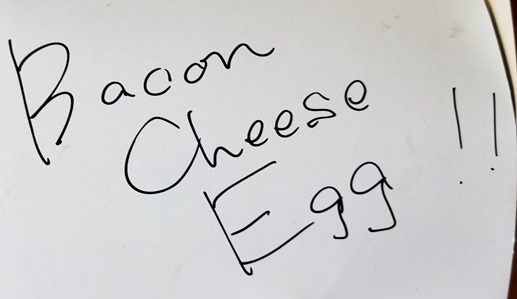 Bacon
Cheese
Egg !!